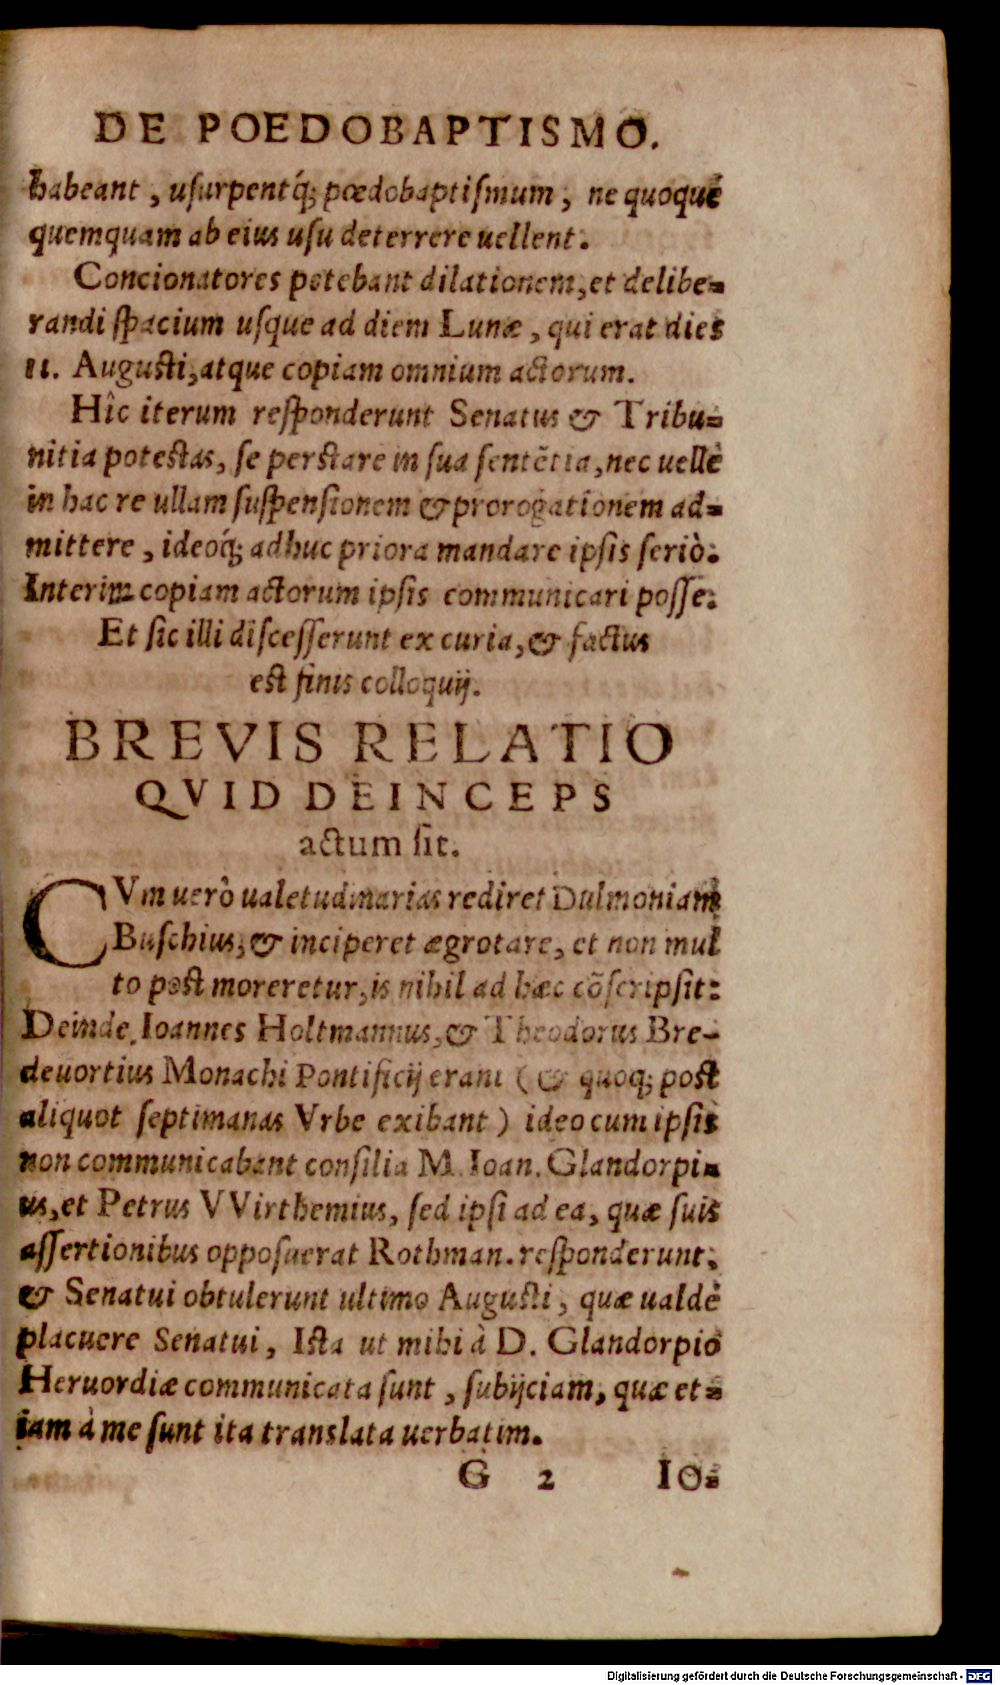 DE POEDOBAPTISMO.
habeant, uſurpentq́; pœdobaptiſmum, ne quoque
quemquam ab eius uſu deterrere uellent.
Concionatores petebant dilationem, et delibe-
randi ſpacium uſque ad diem Lunæ, qui erat dies
11. Auguſti, atque copiam omnium actorum.
Hîc iterum reſponderunt Senatus & Tribu-
nitia poteſtas, ſe perſtare in ſua ſentẽtia, nec uelle
in hac re ullam ſuſpenſionem & prorogationem ad-
mittere, ideoq́; adhuc priora mandare ipſis ſeriò.
Interim copiam actorum ipſis communicari poſſe.
Et ſic illi diſceſſerunt ex curia, & factus
eſt finis colloquij.
BREVIS RELATIO
QVID DEINCEPS
actum ſit.
CVm uerò ualetudinarias rediret Dulmoniam
Buſchius, & inciperet ægrotare, et non mul
to poſt moreretur, is nihil ad hæc cõſcripſit:
Deinde Ioannes Holtmannus, & Theodorus Bre-
deuortius Monachi Pontificij erant (& quoq; poſt
aliquot ſeptimanas Vrbe exibant) ideo cum ipſis
non communicabant conſilia M. Ioan. Glandorpi-
us, et Petrus VVirthemius, ſed ipſi ad ea, quæ ſuis
aſſertionibus oppoſuerat Rothman. reſponderunt,
& Senatui obtulerunt ultimo Auguſti, quæ ualde
placuere Senatui, Iſta ut mihi à D. Glandorpio
Heruordiæ communicata ſunt, ſubijciam, quæ et-
iam à me ſunt ita translata uerbatim.
G 2 IO-
Digitalisierung gefördert durch die Deutsche Forschungsgemeinschaft - DFG